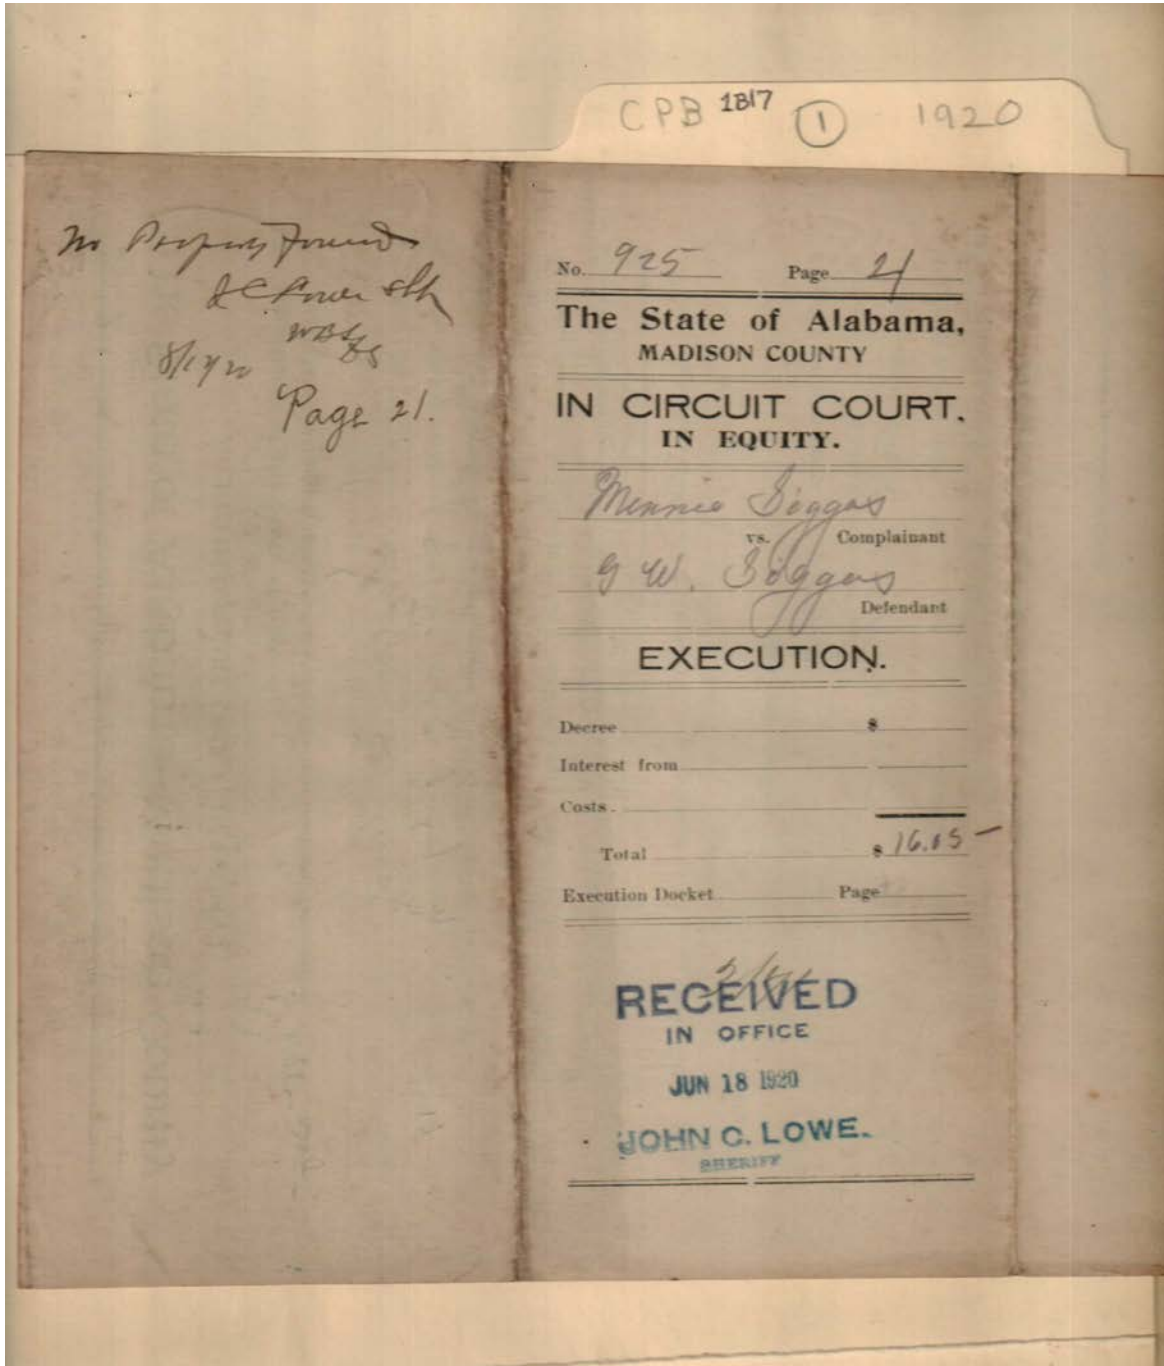 CPB 1B17 1 1920
No Property Found
J C Lowe Shff
Page 21.
No. 925 Page 21
The State of Alabama,
MADISON COUNTY
IN CIRCUIT COURT.
IN EQUITY.
Minnie
vs. Complainant
G W.
Defendant
EXECUTION.
Decree $
Interest from
Costs.
Total $ 16.05
Execution Docket Page
RECEIVED
IN OFFICE
JUN 18 1920
JOHN C. LOWE.
SHERIFF